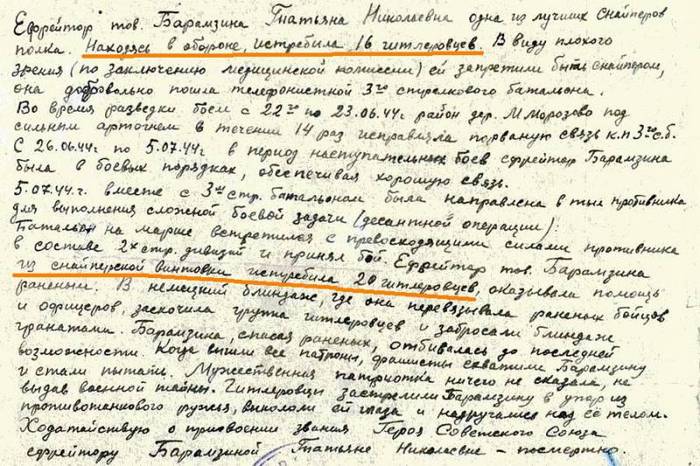 Ефрейтор тов. Барамзина Татьяна Николаевна одна из лучших снайперов
полка. Находясь в обороне, истребила 16 гитлеровцев. В виду плохого
зрения (по заключению медицинской комиссии) ей запретили быть снайпером,
она добровольно пошла телефонисткой 3го стрелкового батальона.
Во время разведки боем с 22го по 23.06.44г. район дер. М. Морозово под
сильным артогнем в течении 14 раз исправляла порванную связь к.п 3го с.б.
С 26.06.44г по 5.07.44г. в период наступательных боев ефрейтор Барамзина
была в боевых порядках, обеспечивая хорошую связь.
5.07.44.г. вместе с 3м стр. батальоном была направлена в тыл противника
для выполнения сложной боевой задачи (десантной операции):
Батальон на марше встретился с превосходящими силами противника
в составе 2х стр. дивизий и принял бой. Ефрейтор тов. Барамзина
из снайперской винтовки истребила 20 гитлеровцев, оказывала помощь
раненым. В немецкий блиндаж, где она перевязывала раненых бойцов
и офицеров, заскочила группа гитлеровцев и забросали блиндаж
гранатами. Барамзина, спасая раненых, отбивалась до последней
возможности. Когда вышли все патроны, фашисты схватили Барамзину
и стали пытать. Мужественная патриотка ничего не сказала, не
выдав военной тайны. Гитлеровцы застрелили Барамзину в упор из
противотанкового ружья, выкололи ей глаза и надругались над её телом.
Ходатайствую о присвоении звания Героя Советского Союза
ефрейтору Барамзиной Татьяне Николаевне - посмертно.